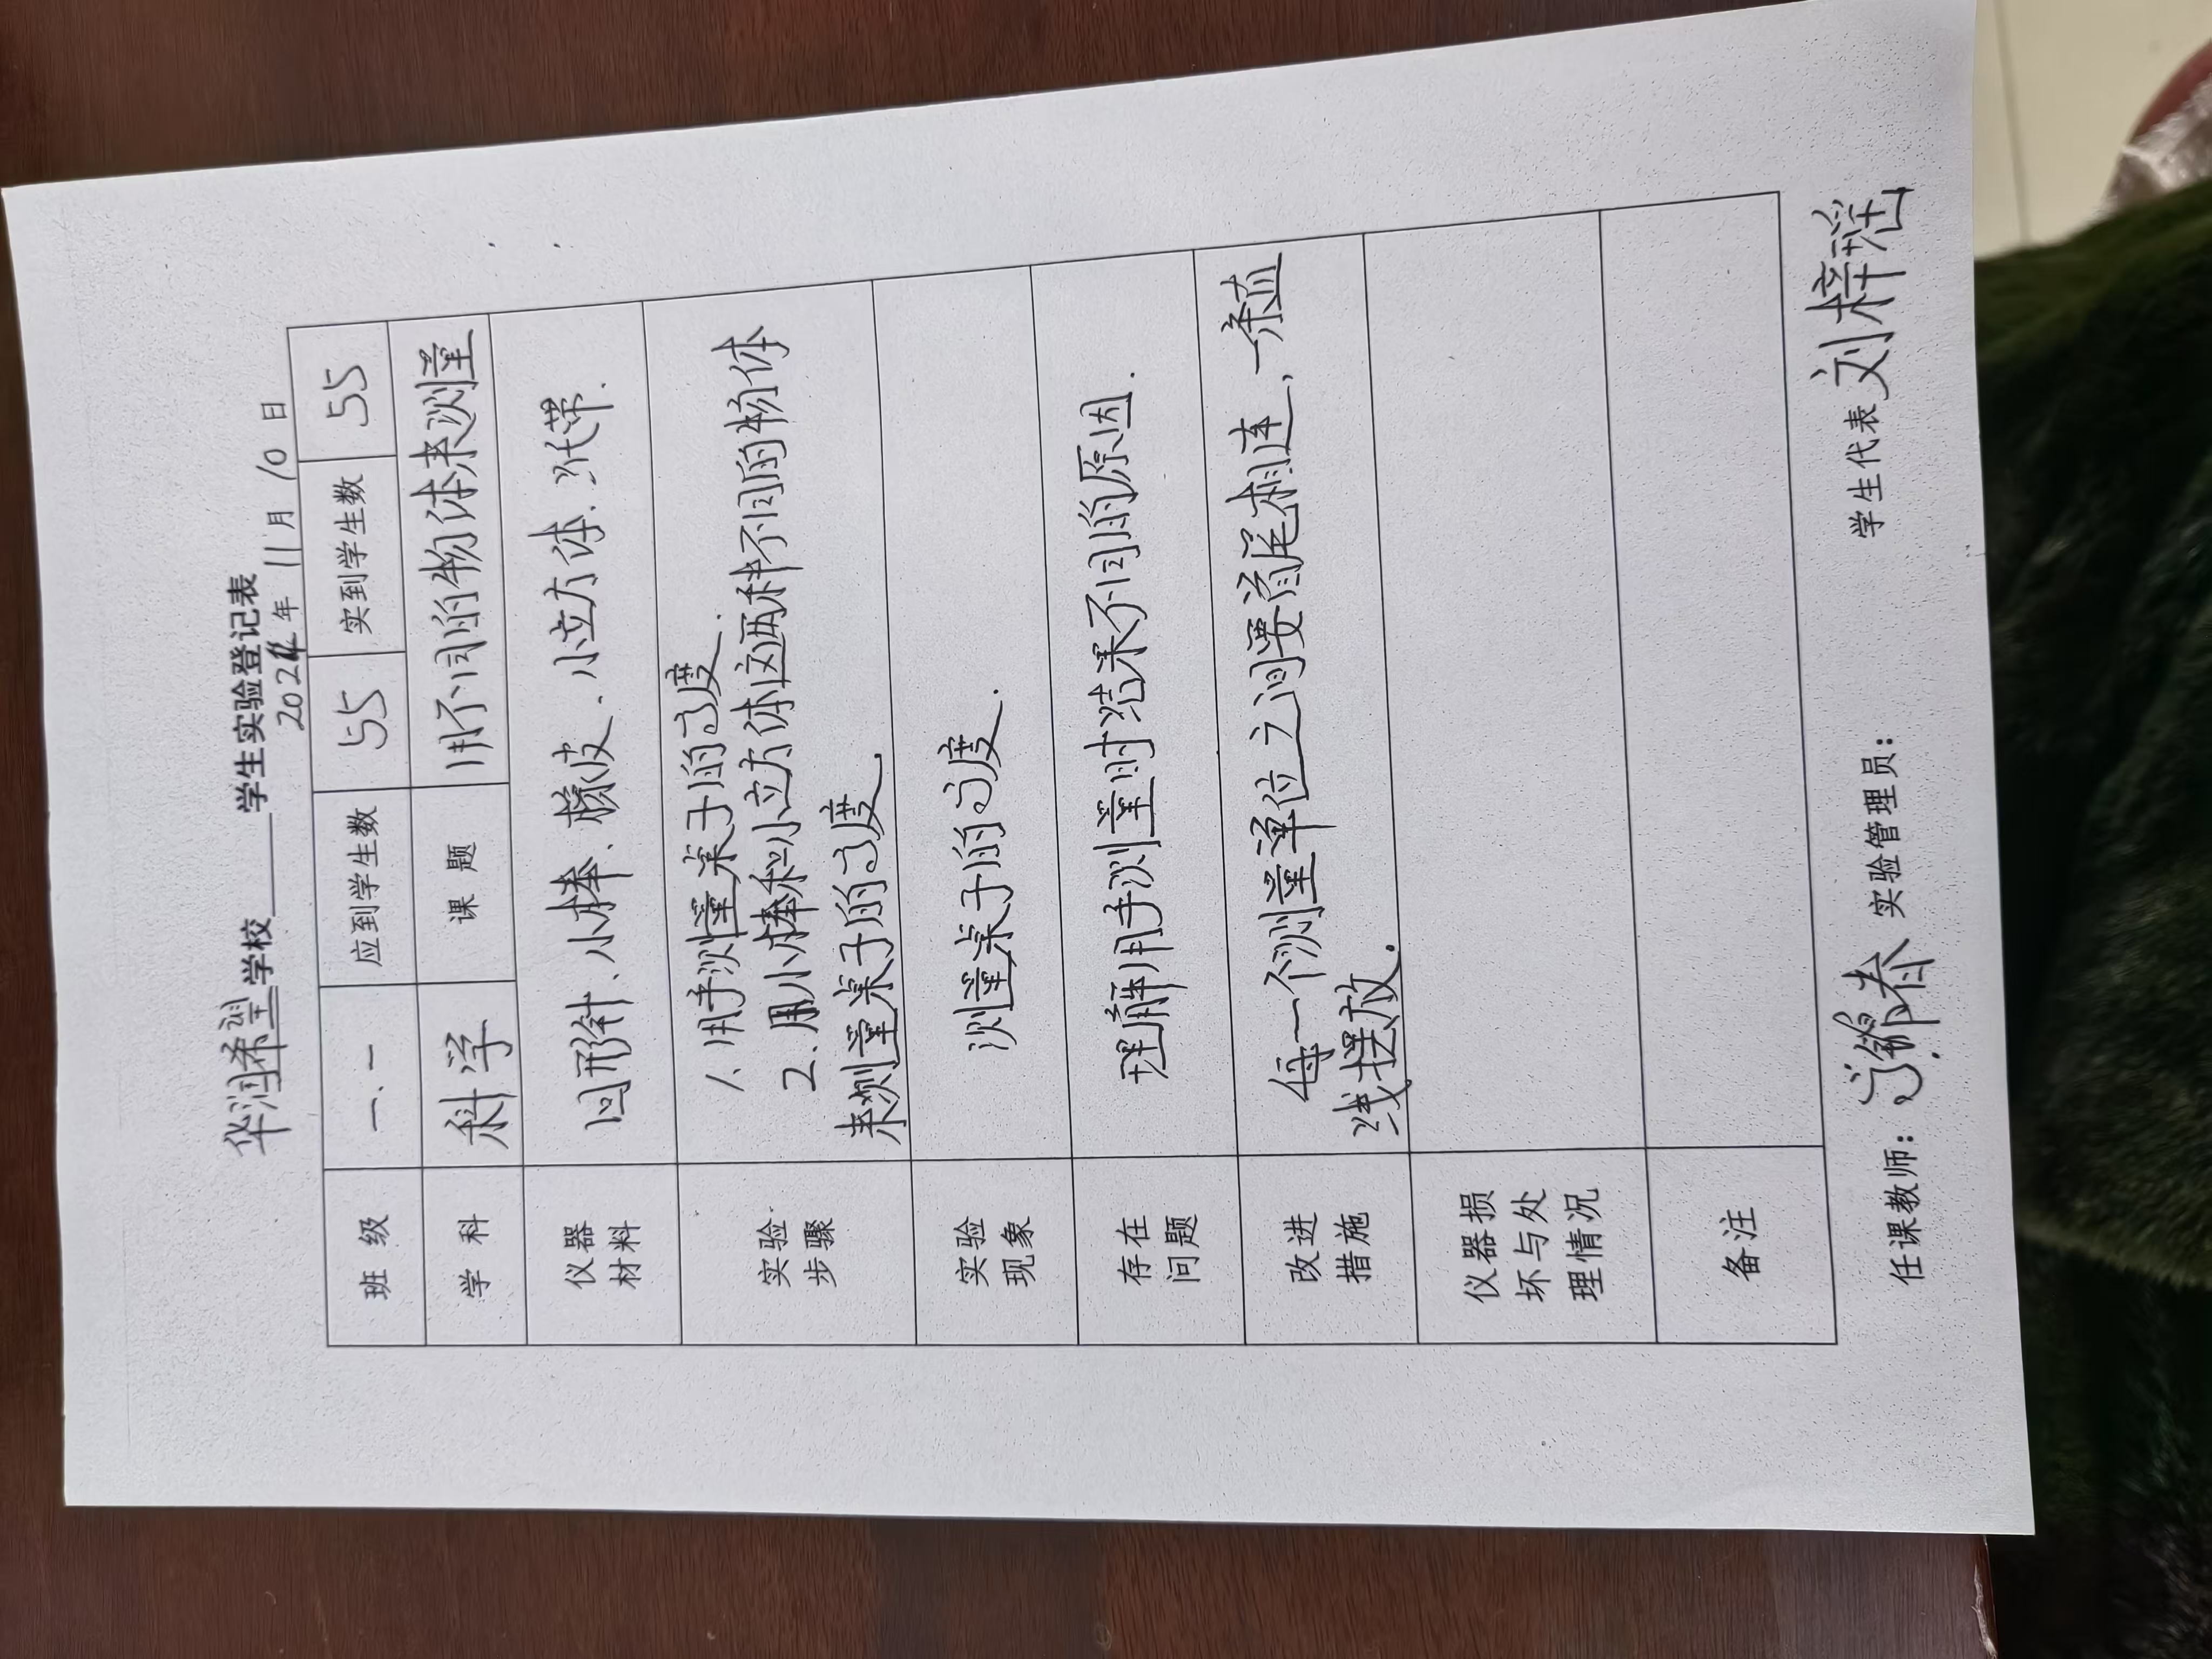 华润希望学校 学生实验登记表
202 年 11 月 10 日
班 级 一.一 应到学生数 55 实到学生数 55
学 科 科学 课 题 用不同的物体来测量
仪器材料 回形针、小棒、橡皮、小立方体、纸带.
实验步骤 1.用手测量桌子的高度.
2.用小棒和小立方体这两种不同的物体
来测量桌子的高度.
实验现象 测量桌子的高度.
存在问题 理解用手测量时结果不同的原因.
改进措施 每一个测量单位之间要首尾相连,一条直
线摆放.
仪器损坏与处理情况
备注
任课教师: 实验管理员: 学生代表 刘梓瑶